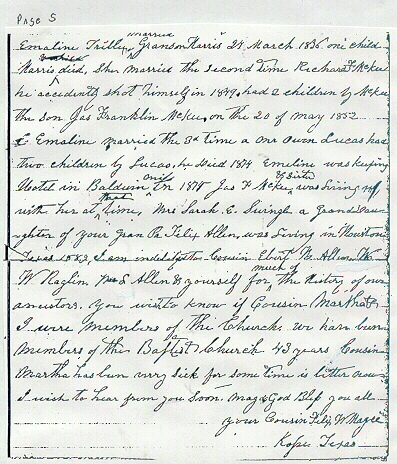 Page 5
married
Emaline Trilley Granson Harris 24 March 1836 one child
Harris died, She married the second time Richard F McKee
he accidently shot himself in 1849, had 2 children by McKee
the son Jas Franklin McKee, on the 20 of may 1852
Emaline married the 3d time a one Owen Lucas had
two children by Lucas, he died 1874 Emeline was keeping
Hotel in Baldwin in 1874 Jas F McKee was living
with her at that time, Mrs Sarah E. a Grand dau
ghter of your Gran Pa Felix Allen, was living in Houston
Texas 1882, I am indebted to Cousin Ebert M. Allen,
much of
W Raglin, S Allen & yourself for the History of our
ancestors. you wish to know if Cousin Martha &
I were members of the Church we have been
members of the Baptist Church 43 years Cousin
Martha has been very sick for some time is better now
I wish to hear from you soon. may God Bless you all
your Cousin Felix W Magee
Kosse Texas